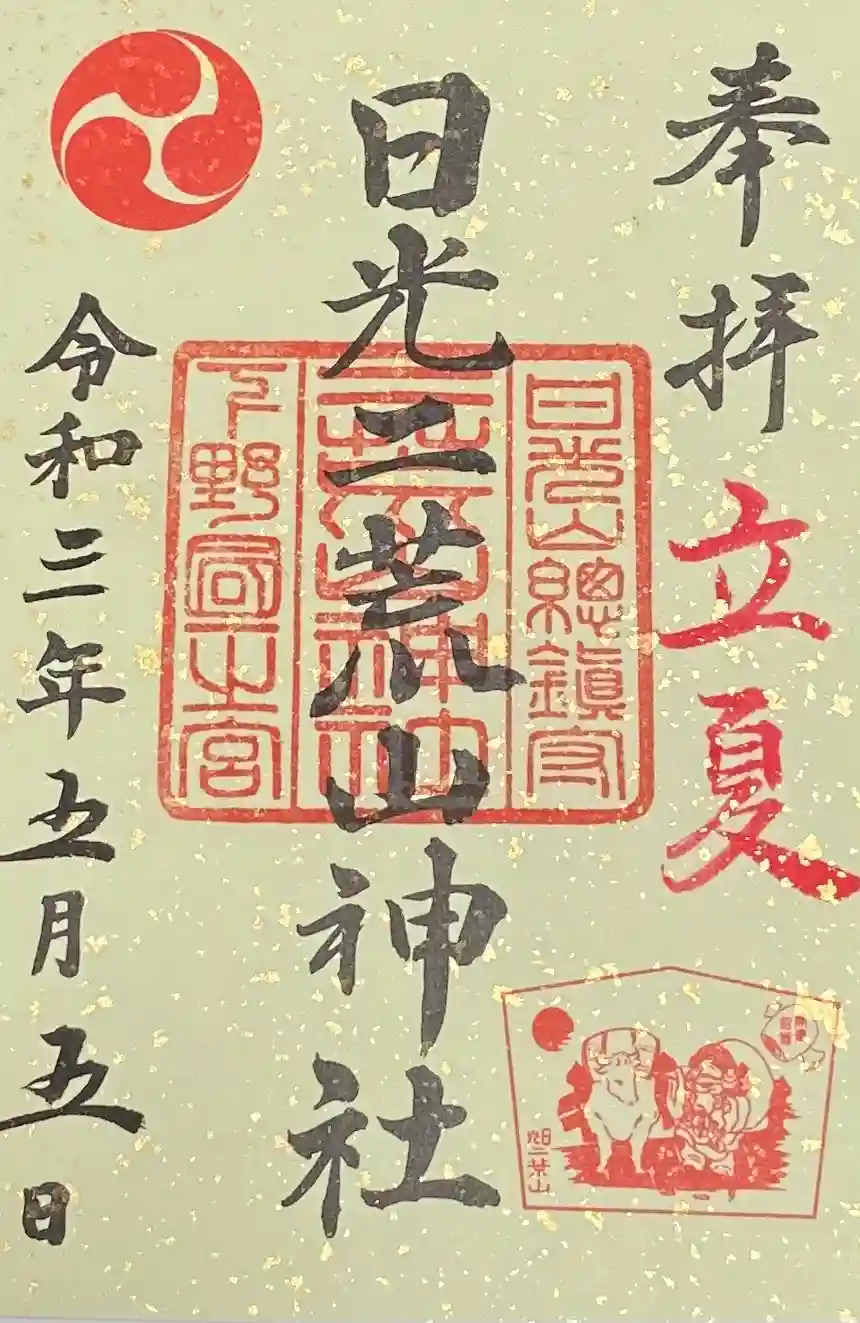 奉拝
立夏
日光山總鎮守
日光二荒山神社
二荒山神社
下野國一之宮
令和三年五月五日